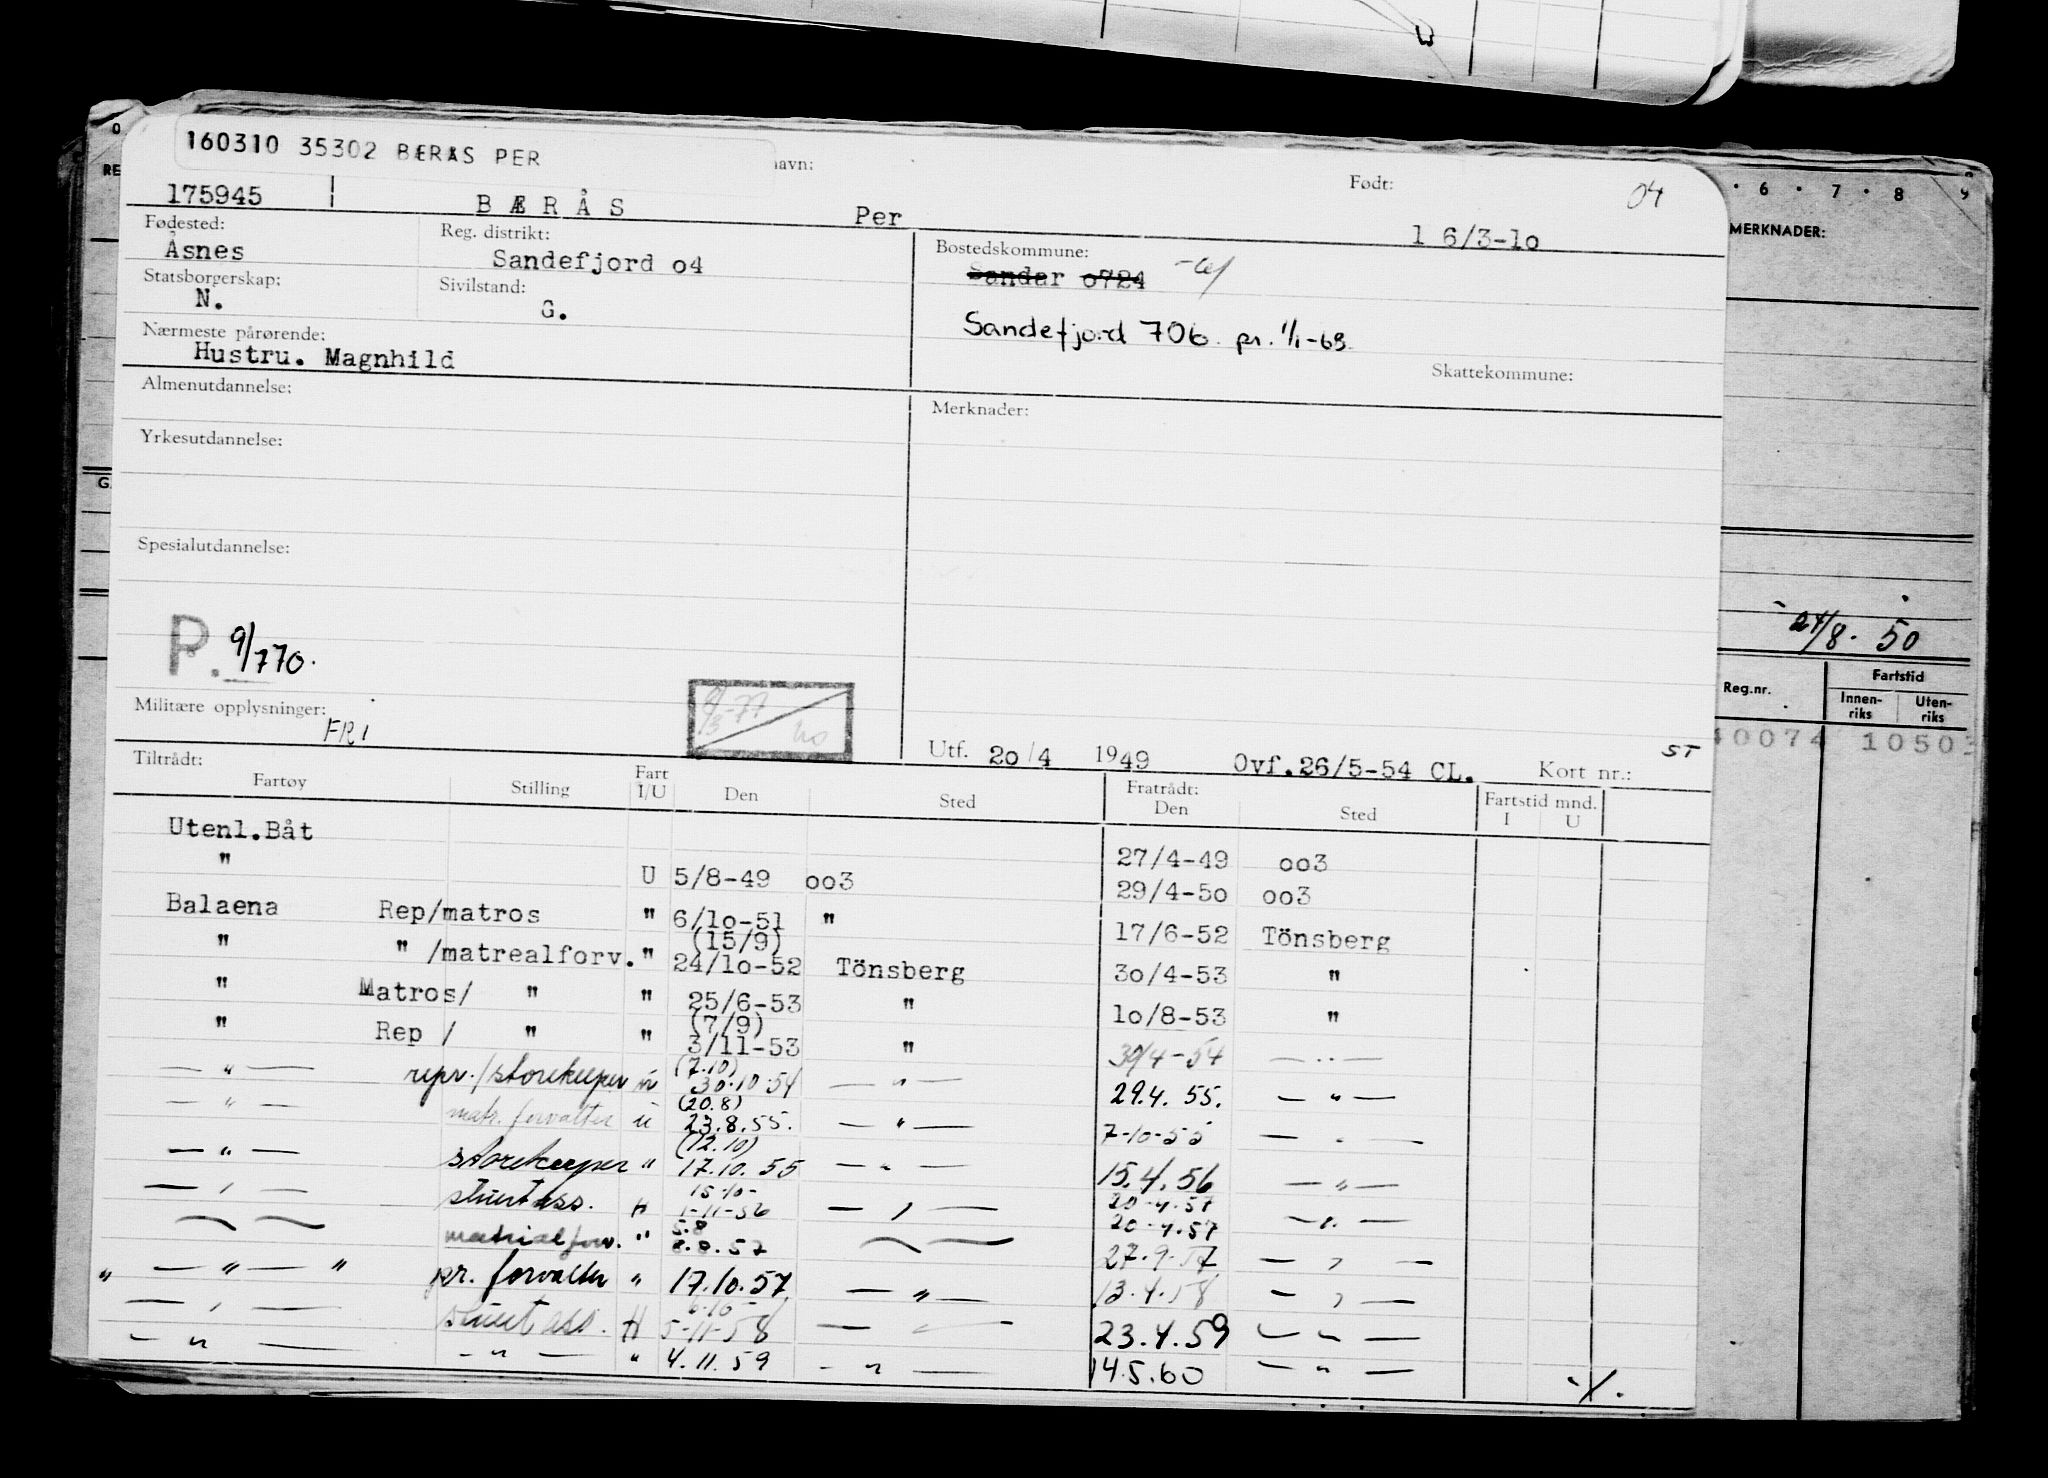 160310 35302 BÆRÅS PER
navn:
Født:
04
175945 BÆRÅS Per 1 6/3-1o
Fødested: Åsnes
Reg. distrikt: Sandefjord o4
Bostedskommune: Sandar o724
Statsborgerskap: N.
Sivilstand: G.
Sandefjord 706. pr. 1/1-69.
Nærmeste pårørende:
Hustru. Magnhild
Skattekommune:
Almenutdannelse:
Merknader:
Yrkesutdannelse:
Spesialutdannelse:
P. 9/770.
Militære opplysninger: FRI
Utf. 2o/4 1949 Ovf.26/5-54 CL. Kort nr.: ST
Tiltrådt: Fratrådt: Fartstid mnd.
Fartøy Stilling Fart I/U Den Sted Den Sted I U
Utenl.Båt 27/4-49 oo3
" U 5/8-49 oo3 29/4-5o oo3
Balaena Rep/matros " 6/1o-51 " 17/6-52 Tönsberg
" " /matrealforv. " (15/9) 24/1o-52 Tönsberg 3o/4-53 "
" Matros/ " " 25/6-53 " 1o/8-53 "
" Rep / " " (7/9) 3/11-53 " 30/4-54 — " —
— " — repr./storekeeper (7.10) 30.10.54 — " — 29.4.55. — " —
— " — matr. forvalter u (20.8) 23.8.55. — " — 7-10-55 — " —
— " — storekeeper " (12.10) 17.10.55 — " — 15.4.56 — " —
— " — stuert ass. H 15-10- 1-11-56 — " — 20-4-57
20-4.57 — " —
matrialforv. " 5.8 8.8.57 27.9.57 — " —
" — " — " pr. forvalter " 17.10.57 — " — 13.4.58 — " —
— " — stuert ass. H 6-10- 5-11-58 — " — 23.4.59 — " —
— " — — " — " 4.11.59 — " — 14.5.60 — " —
·/.
6 · 7 · 8 9
MERKNADER:
24/8. 50
Reg.nr. Fartstid
Innenriks Utenriks
40074 10503